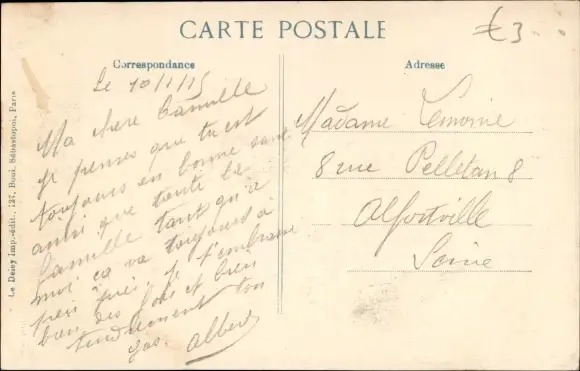 CARTE POSTALE
£3
Correspondance
Adresse
Le 10/1/15
Ma chère Camille
je penses que tu est
toujours en bonne santé
ainsi que toute ta
famille tant qu'a
moi ça va toujours à
peu près, je t'embrasse
bien des fois et bien
tendrement ton
gos. Albert
Madame Lemoine
8 rue Pelletan 8
Alfortville
Seine
Le Deley Imp.-édit., 127, Boul. Sébastopol, Paris